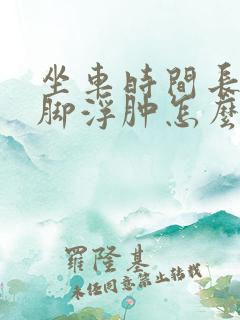 坐車時間長
脚浮肿怎麼
羅隆基
未任同意禁止转载